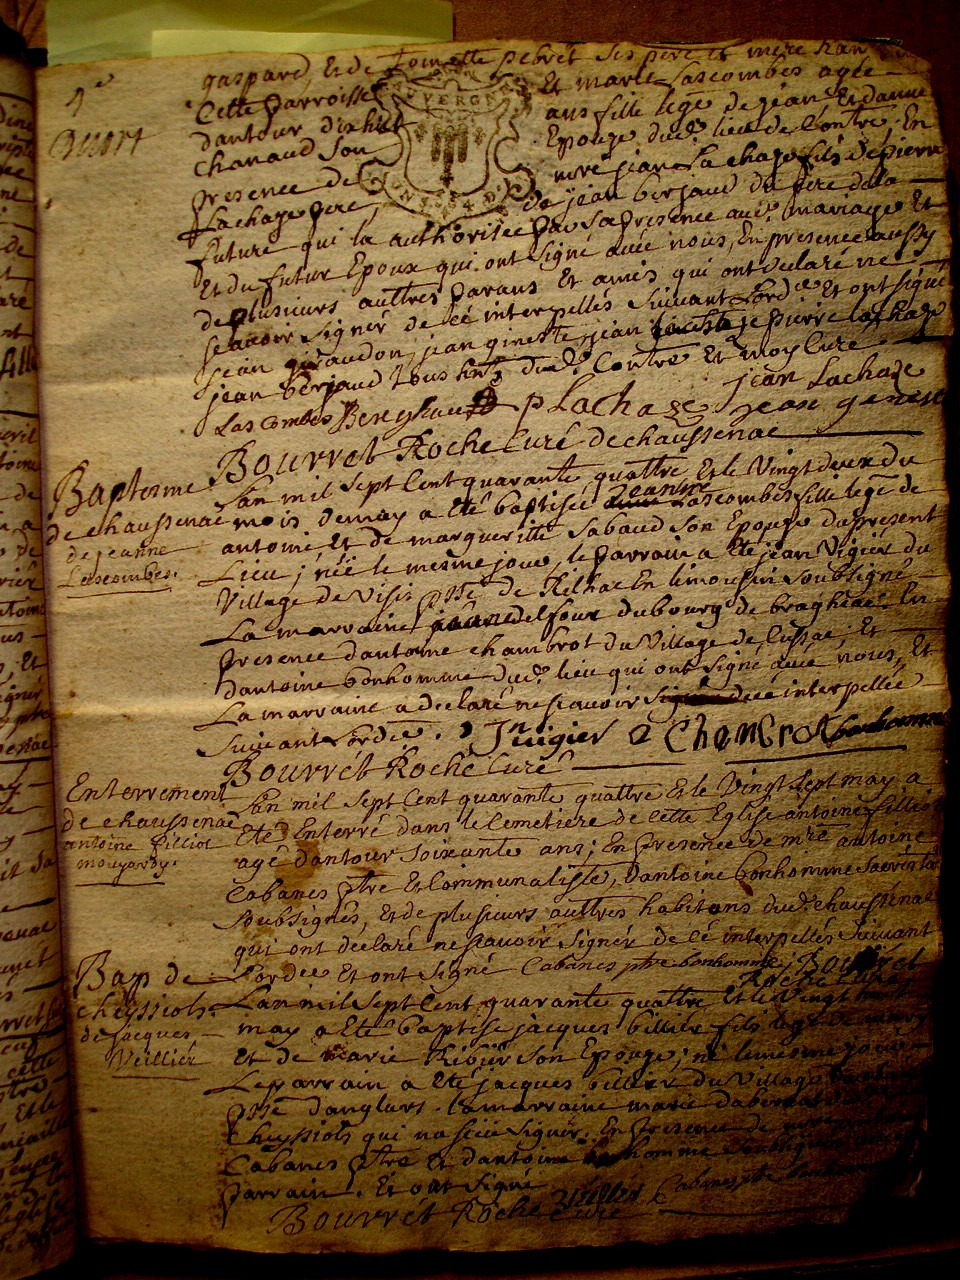 gaspard, Et de Toinette pebret ses pere et mere
Cette parroisse Et marie Lascombes agée
dantour dixhuit ans fille legê de jean Et danne
chanaud son Epouze dud. lieu de Contre, En
presence de mre jean Lachaze fils de pierre
Lachaze pere, de jean berjaud du pere de la
future qui la authorisée par sa presence aud. mariage Et
Et du futur Epoux qui ont signé avec nous, En presence aussy
de plusieurs auttres parans Et amis qui ont declaré ne
scavoir signer de cé interpellés suivant Lord.ce Et ont signé
jean giraudon, jean gineste, jean pierre lachaze
jean berjaud tous hnts dud. Contre Et moy Curé
Lascombes Berghaud p Lachaze jean Lachaze
jean genest
Bourret Roche Curé de chaussenac
Baptesme
de chaussenac
de jeanne
Lascombes.
Lan mil sept Cent quarante quattre Et le Vingt deux du
mois de may a eté baptisée jeanne Lascombes fille legê de
antoine, Et de margueritte Sabaud son Epouze dapresent
Lieu; née le mesme jour, le parrain a eté jean Vigier du
Village de Visis psse de Rilhac En limousin soubsigné
La marraine jeanne delfour du bourg de bragheac. En
presence dantoine chambrot du Village de Cussac, Et
dantoine bonhomme dud. lieu qui ont signé avec nous, Et
La marraine a declaré ne scavoir signer de cé interpellée
suivant Lordce. J vigier a Chamcrot bonhomme
Bourret Roche Curé
Enterrement
de chaussenac
antoine filliol
Lan mil sept Cent quarante quattre Et le Vingt sept may a
Eté Enterré dans le Cemetiere de cette Eglise antoine filliol
agé dantour soixante ans; En presence de mre antoine
Cabanes ptre Et Communaliste, dantoine bonhomme
soubsignés, Et de plusieurs auttres habitans dud. chaussenac
qui ont declaré ne scavoir signer de cé interpellés suivant
Lordce Et ont signé Cabanes ptre bonhomme, Bourret
Roche Curé
Bap de
cheyssiols.
de jacques
Veillier
Lan mil sept Cent quarante quattre Et le Vingt
may a eté baptisé jacques billier fils legê de
Et de marie Ribier son Epouze; né le mesme jour
Le parrain a eté jacques billier du Village
psse danglars. la marraine marie dabernat
Cheyssiols qui na scicé signer. En presence de mre
Cabanes ptre Et dantoine bonhomme soubsignés
parrain. Et ont signé
Bourret Roche Curé Cabanes ptre